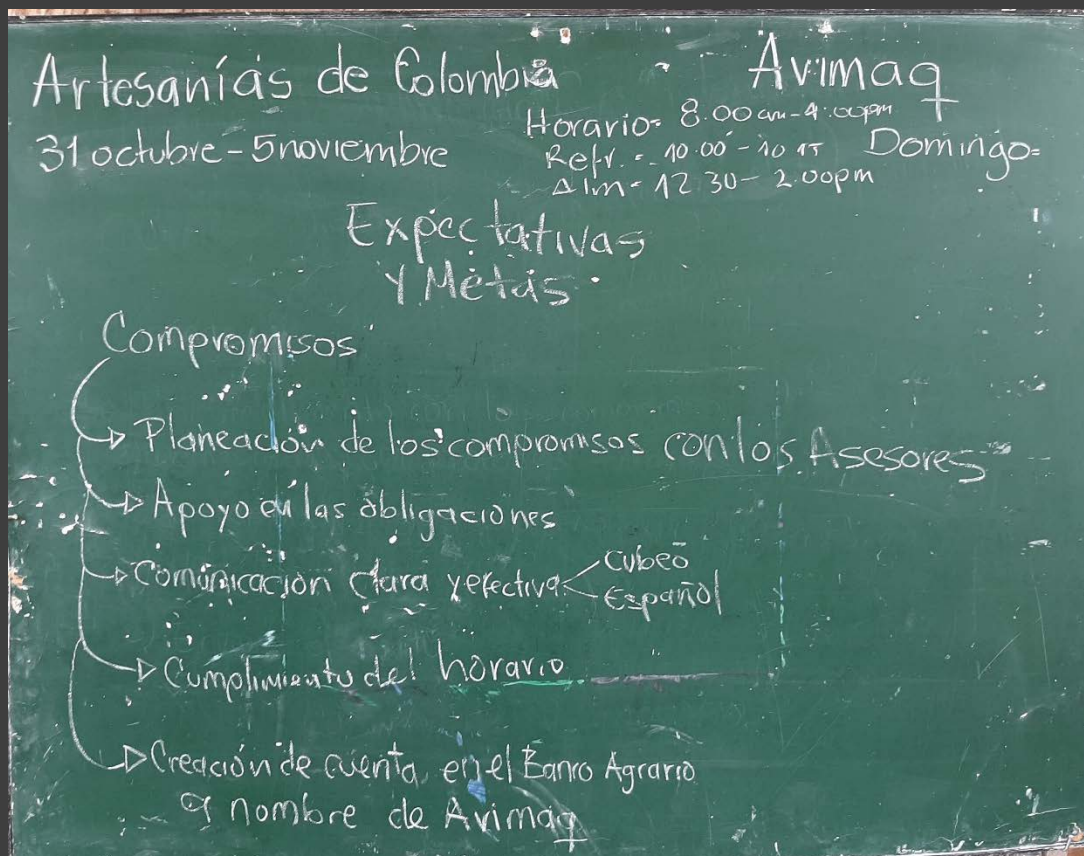 Artesanías de Colombia
Avimaq
31 octubre - 5 noviembre
Horario: 8:00 am - 4:00 pm
Refr. = 10:00 - 10 15
Alm - 12 30 - 2.00pm
Domingo=
Expectativas
Y Metas
Compromisos
Planeación de los compromisos con los Asesores
Apoyo en las obligaciones
Comunicación clara y efectiva
Cubeo
Español
Cumplimiento del horario
Creación de cuenta en el Banco Agrario
a nombre de Avimaq